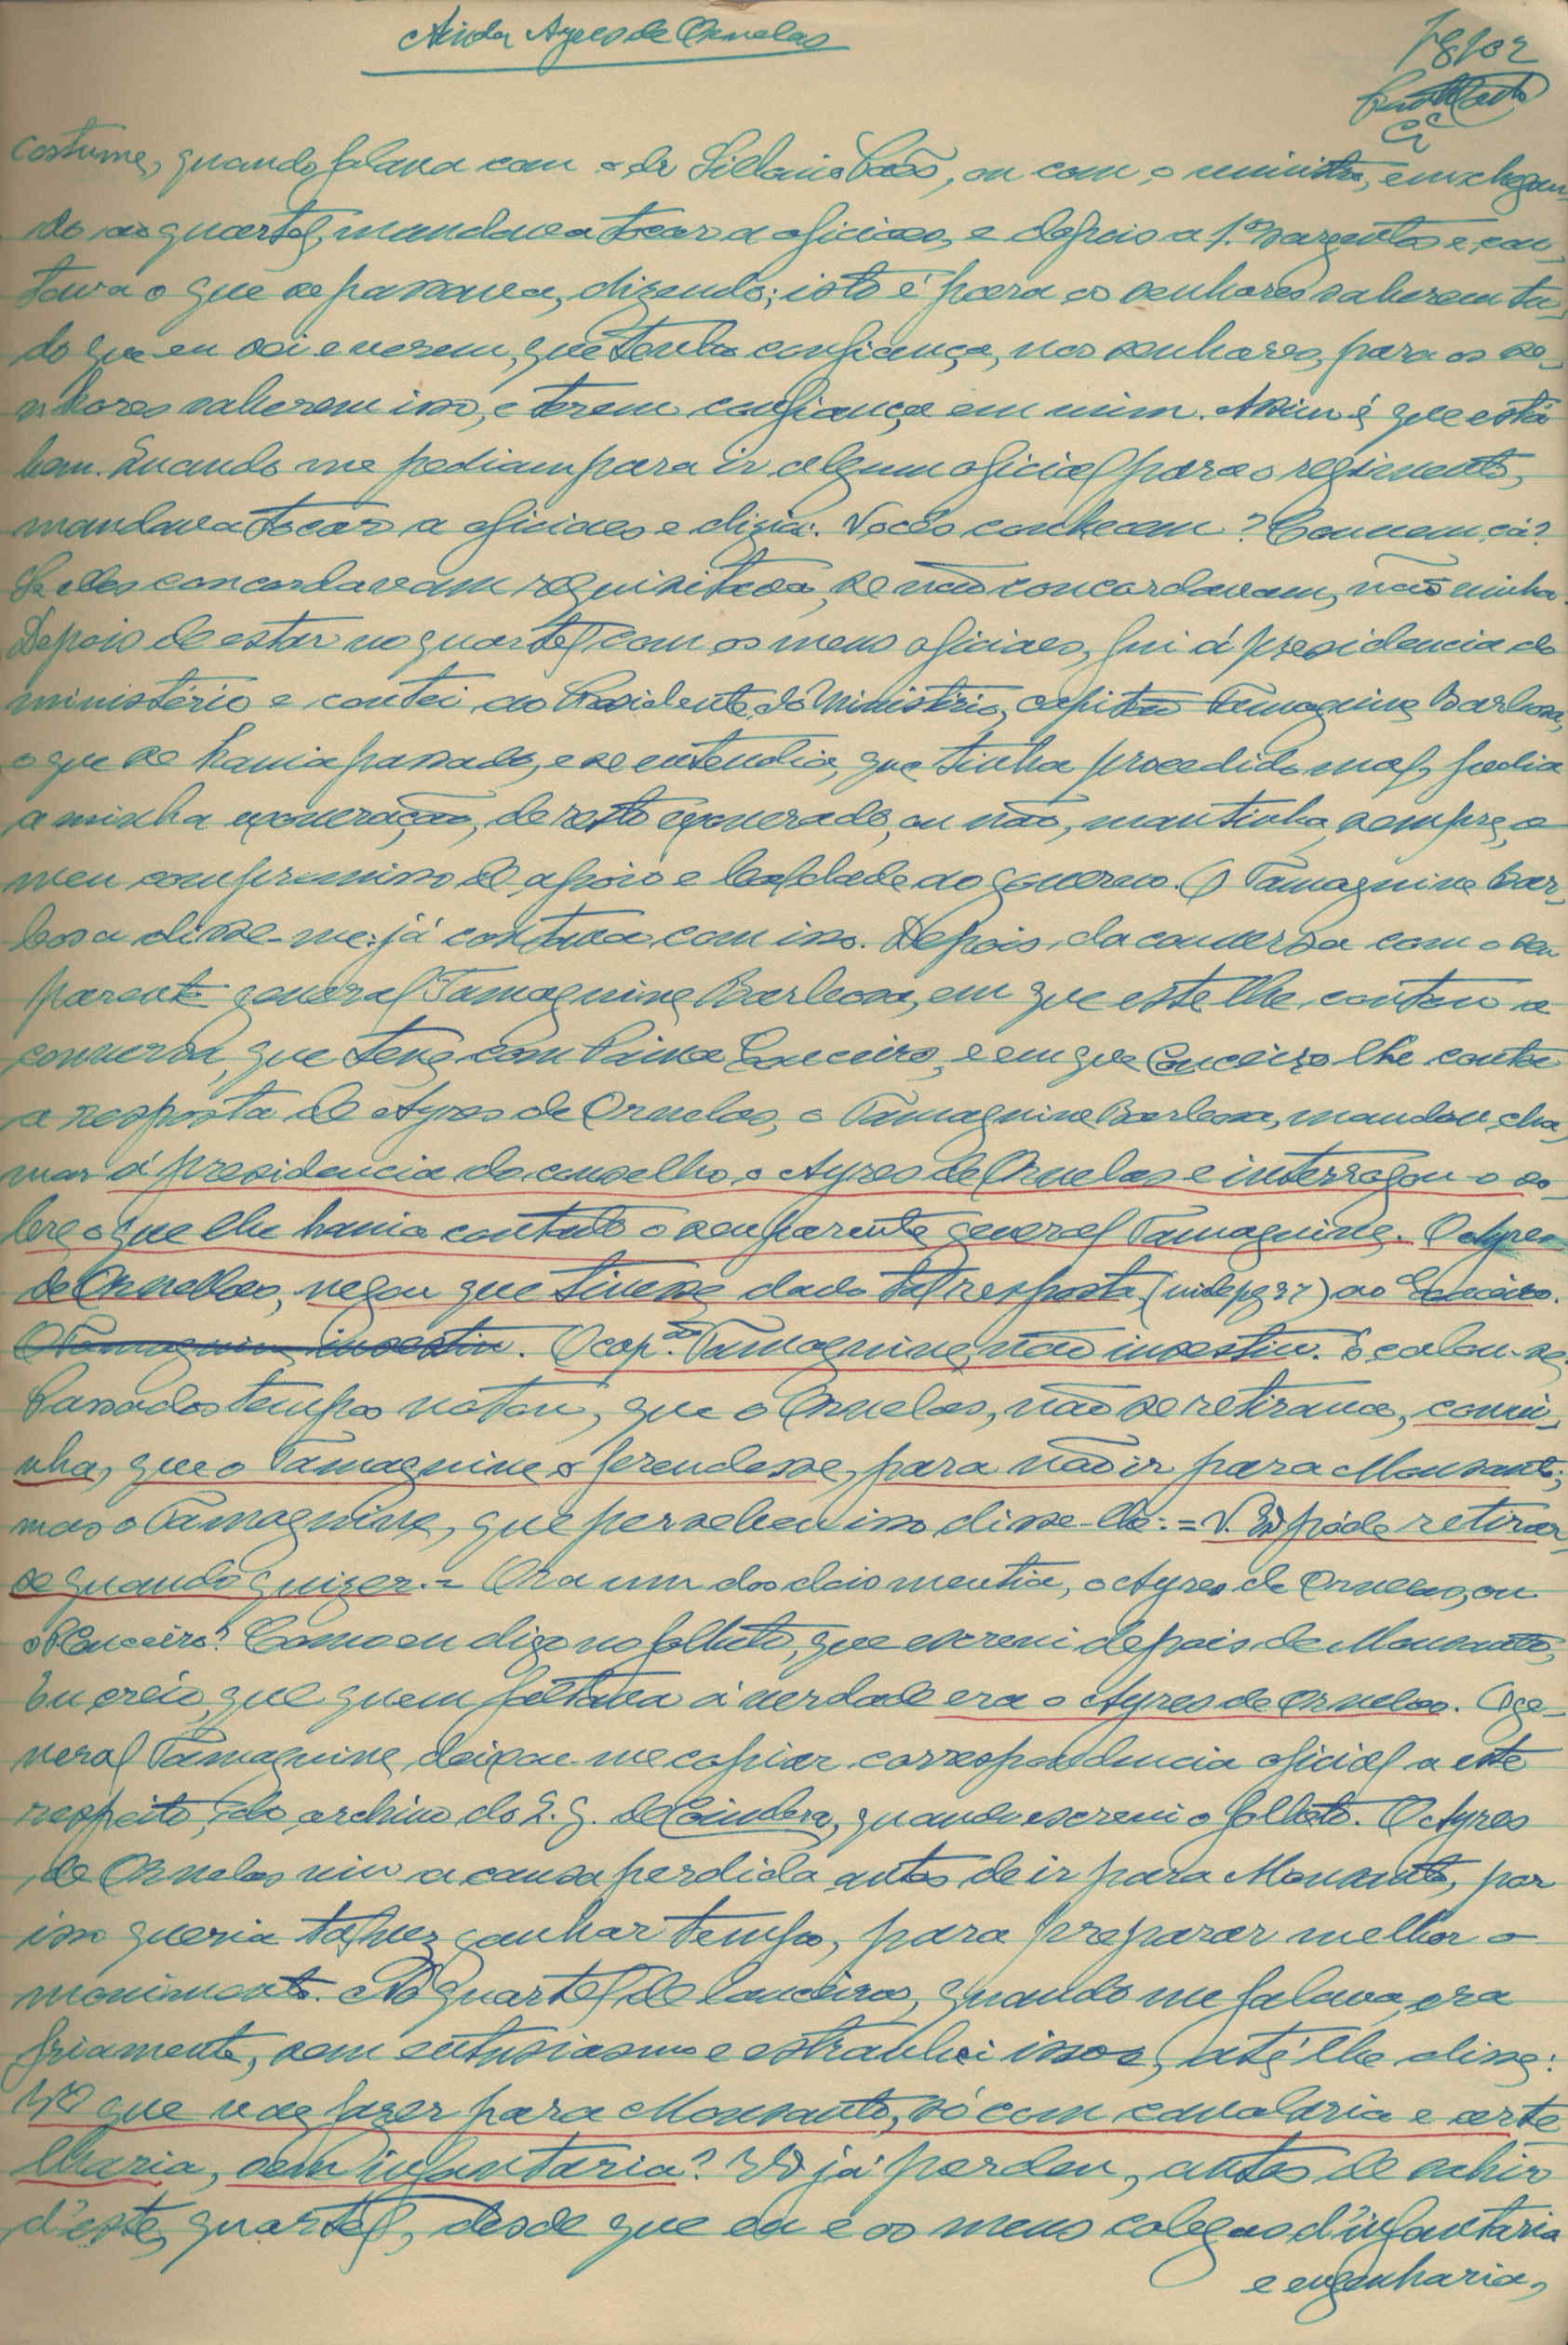 Ainda Ayres de Ornelas
costume, quando falava com o dr Sidonio Paes, ou com o ministro, em chegan
do ao quartel, mandava tocar a oficiaes, e depois a 1.os sargentos e con_
tava o que se passava, dizendo; isto é para os senhores saberem tu_
do que eu sei e verem, que tenho confiança, nos senhores, para os se_
nhores saberem isso, e terem confiança em mim. Assim é que está
bem. Quando me pediam para ir algum oficial para o regimento,
mandava tocar a oficiaes e dizia: Vocês conhecem? Convem cá?
Se elles concordavam requisitava, se não concordavam, não vinha.
Depois de estar no quartel com os meus oficiaes, fui á presidencia do
ministério e contei ao Presidente do Ministério, capitão Tamagnine Barbosa,
o que se havia passado, e se entendia, que tinha procedido mal, pedia
a minha exoneração, de resto exonerado, ou não, mantinha sempre, o
meu compromisso de apoio e lealdade ao governo. O Tamagnine Bar_
bosa disse-me: já contava com isso. Depois, da conversa com o seu
parente general Tamagnine Barbosa, em que este lhe contou a
conversa, que teve com Paiva Conceiro, e em que Conceiro lhe contou
a resposta de Ayres de Ornelas, o Tamagnine Barbosa, mandou cha_
mar á presidencia do conselho, o Ayres de Ornelas e interrogou-o so_
bre o que lhe havia contado o seu parente general Tamagnine. O Ayres
de Ornellas, negou que tivesse dado tal resposta, (vide pg 37) ao Conceiro.
O Tamagnine insestiu. O cap.ão Tamagnine, não insestiu. E calou-se
Passados tempos notou, que o Ornelas, não se retirava, convi_
nha, que o Tamagnine o prendesse, para não ir para Monsanto;
mas o Tamagnine, que persebeu isso disse-lhe: = V. Ex póde retirar_
se quando quizer. = Ora um dos dois mentia, o Ayres de Ornelas, ou
o P Conceiro? Como eu digo no folheto, que escrevi depois de Monsanto,
Eu creio, que quem faltava á verdade era o Ayres de Ornelas. O ge_
neral Tamagnine, deixou-me copiar correspondencia oficial a este
respeito, do archivo do Q. G. de Coimbra, quando escrevi o folheto. O Ayres
de Ornelas viu a causa perdida antes de ir para Monsanto, por
isso queria talvez ganhar tempo, para preparar melhor o
movimento. No quartel de lanceiros, quando me falava, era
friamente, sem entusiasmo e estranhei isso, até lhe disse:
que vae fazer para Monsanto, só com cavalaria e arte
lharia, sem infantaria? já perdeu, antes de sahir
d'este, quartel, desde que eu e os meus colegas d'infantaria
e engenharia,